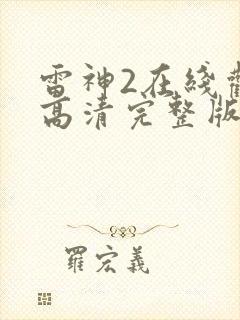 雷神2在綫
高清完整版
羅宏義